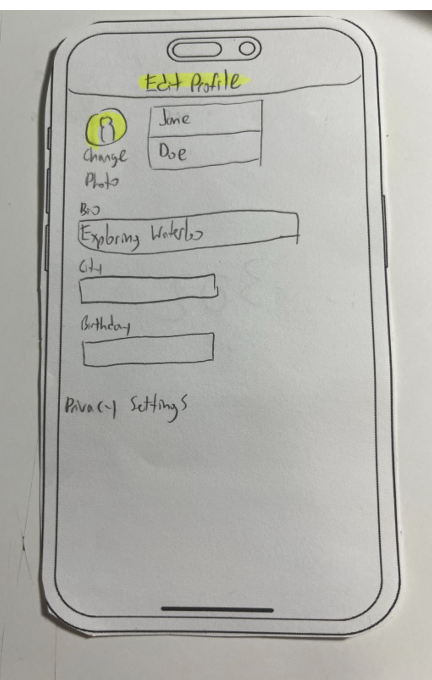 Edit Profile
Jane
Doe
Change
Photo
Bio
Exploring Waterloo
City
Birthday
Privacy Settings